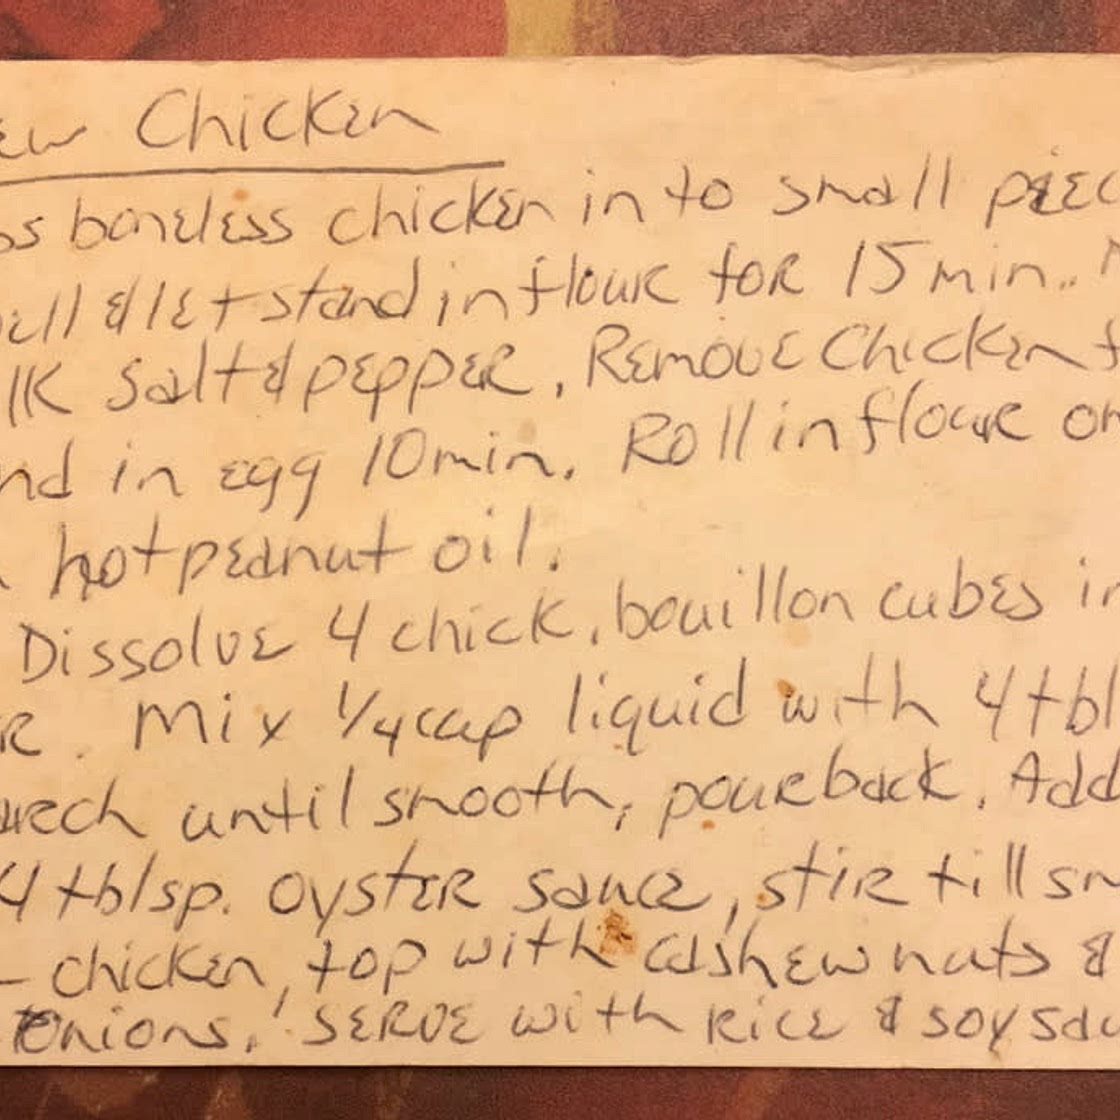 ew Chicken
bs boneless chicken in to small piec
ell & let stand in flour for 15 min..
lk salt & pepper. Remove Chicken
nd in egg 10 min. Roll in flour
hot peanut oil.
Dissolve 4 chick. bouillon cubes in
R. Mix 1/4 cup liquid with 4 tbl
arch until smooth, pour back. Add
4 tblsp. oyster sauce, stir till sm
chicken, top with cashew nuts &
onions. Serve with rice & soy sau